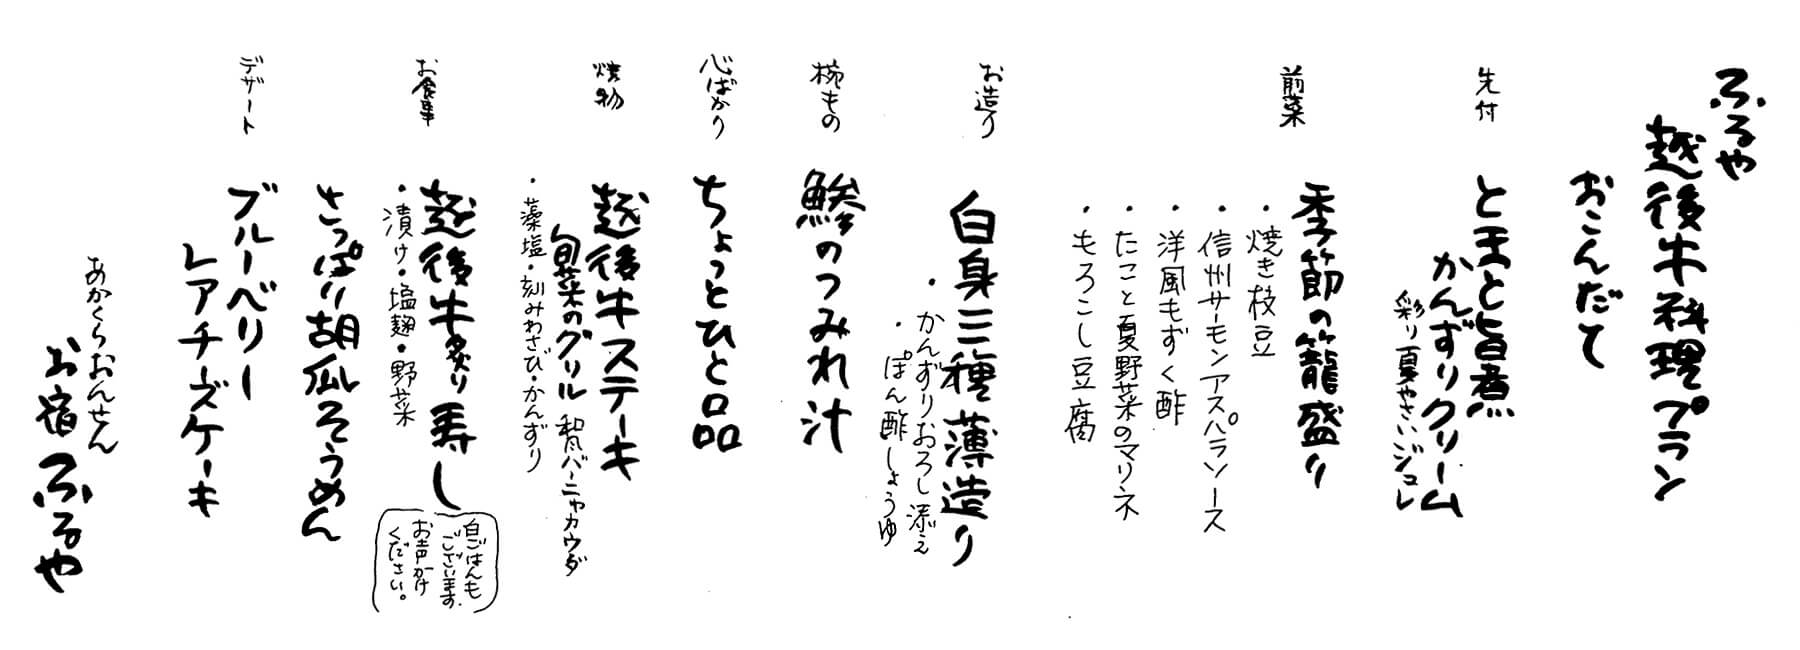 ふるや
越後牛料理プラン
おこんだて
先付
と玉と旨煮
かんずりクリーム
彩り夏やさいジュレ
前菜
季節の籠盛り
・焼き枝豆
・信州サーモンアスパラソース
・洋風もずく酢
・たこと夏野菜のマリネ
・もろこし豆腐
お造り
白身三種薄造り
・かんずりおろし添え
・ぽん酢しょうゆ
椀もの
鯵のつみれ汁
心ばかり
ちょっとひと品
焼物
越後牛ステーキ
旬菜のグリル 和風バーニャカウダ
・藻塩・刻みわさび・かんずり
お食事
越後牛炙り寿し
・漬け・塩麹・野菜
白ごはんも
ございます。
お声かけ
ください。
さっぱり胡瓜そうめん
デザート
ブルーベリー
レアチーズケーキ
あかくらおんせん
お宿ふるや